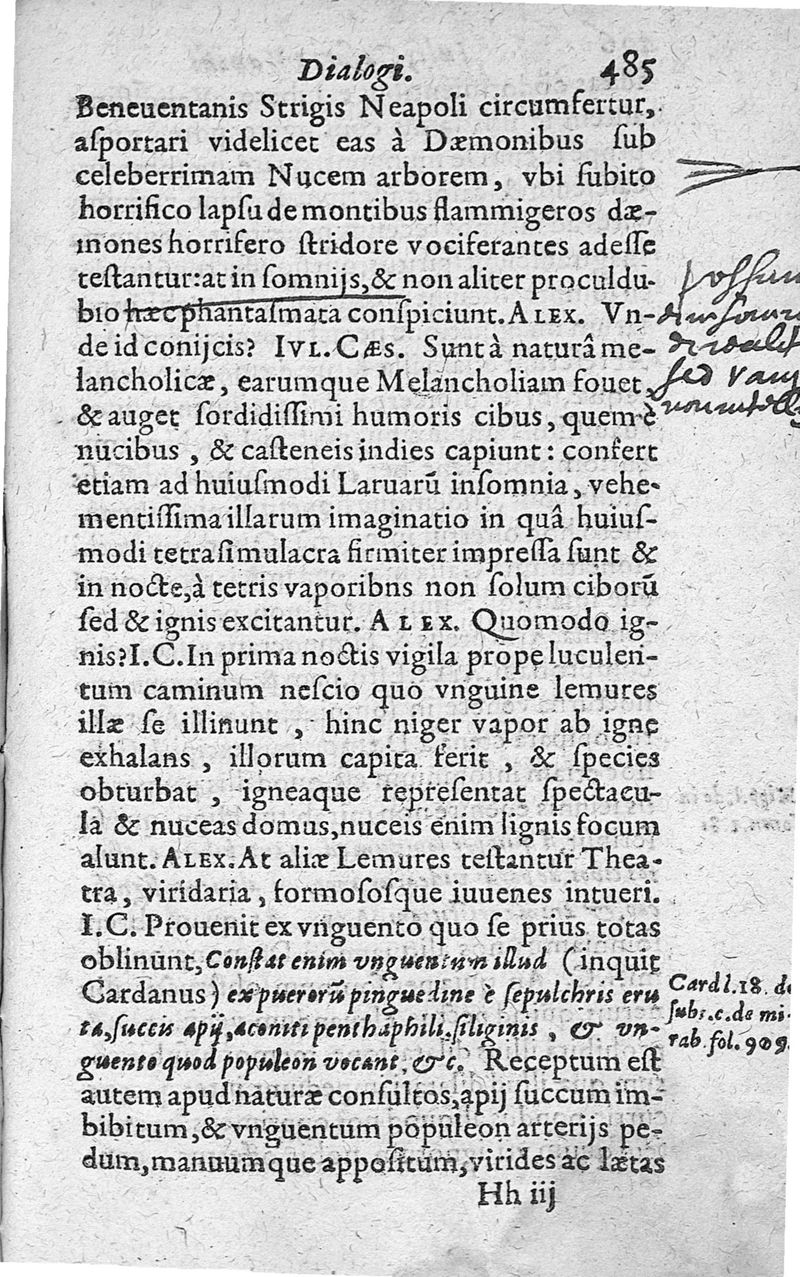 Dialogi. 485
Beneuentanis Strigis Neapoli circumfertur,
aſportari videlicet eas à Dæmonibus ſub
celeberrimam Nucem arborem, vbi ſubito
horrifico lapſu de montibus flammigeros dæ-
mones horrifero ſtridore vociferantes adeſſe
teſtantur: at in ſomnijs, & non aliter proculdu-
bio hæc phantaſmata conſpiciunt. ALEX. Vn-
de id conijcis? IVL. CÆS. Sunt à naturâ me-
lancholicæ, earumque Melancholiam fouet,
& auget ſordidiſſimi humoris cibus, quem è
nucibus, & caſteneis indies capiunt: confert
etiam ad huiuſmodi Laruarũ inſomnia, vehe-
mentiſſima illarum imaginatio in quâ huiuſ-
modi tetra ſimulacra firmiter impreſſa ſunt &
in nocte, à tetris vaporibns non ſolum ciborũ
ſed & ignis excitantur. ALEX. Quomodo ig-
nis? I.C. In prima noctis vigila prope luculen-
tum caminum neſcio quo vnguine lemures
illæ ſe illinunt, hinc niger vapor ab igne
exhalans, illorum capita ferit, & ſpecies
obturbat, igneaque repreſentat ſpectacu-
la & nuceas domus, nuceis enim lignis focum
alunt. ALEX. At aliæ Lemures teſtantur Thea-
tra, viridaria, formoſoſque iuuenes intueri.
I.C. Prouenit ex vnguento quo ſe prius totas
oblinunt, Conſtat enim vnguentum illud (inquit
Cardanus) ex puerorũ pinguedine è ſepulchris eru
ta, ſuccis apij, aconiti penthaphili, ſiliginis, & vn-
guento quod populeon vocant, &c. Receptum eſt
autem apud naturæ conſultos, apij ſuccum im-
bibitum, & vnguentum populeon arterijs pe-
dum, manuumque appoſitum, virides ac lætas
Hh iij
ſed
Card l. 18. de
ſubt. c. de mi-
rab. fol. 909.